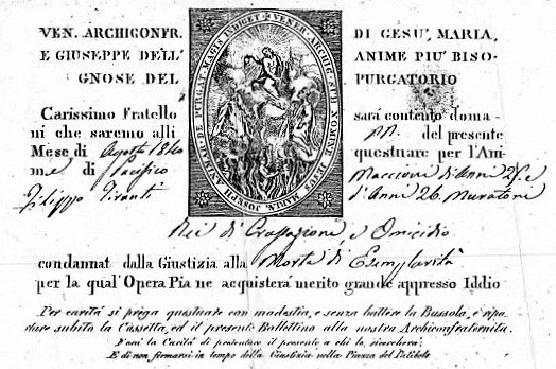 VEN. ARCHICONFR. DI GESU', MARIA,
E GIUSEPPE DELL' ANIME PIU' BISO-
GNOSE DEL PURGATORIO
Carissimo Fratello sarà contento doma-
ni che saremo alli del presente
Mese di Agosto 1840 questuare per l'Ani-
me di Pacifico Maccioni d'Anni 25, e
Filippo Tiranti d'Anni 26 Muratori
Rei di Grassazione, e Omicidio
condannati dalla Giustizia alla Morte di Esemplarità
per la qual' Opera Pia ne acquisterà merito grande appresso Iddio
Per carità si prega questuare con modestia, e senza battere la Bussola, e ripor-
tare subito la Cassetta, ed il presente Bollettino alla nostra Archiconfraternita.
E usi la Carità di presentare il presente a chi lo ricercherà;
E di non fermarsi in tempo della Giustizia nella Piazza del Patibolo